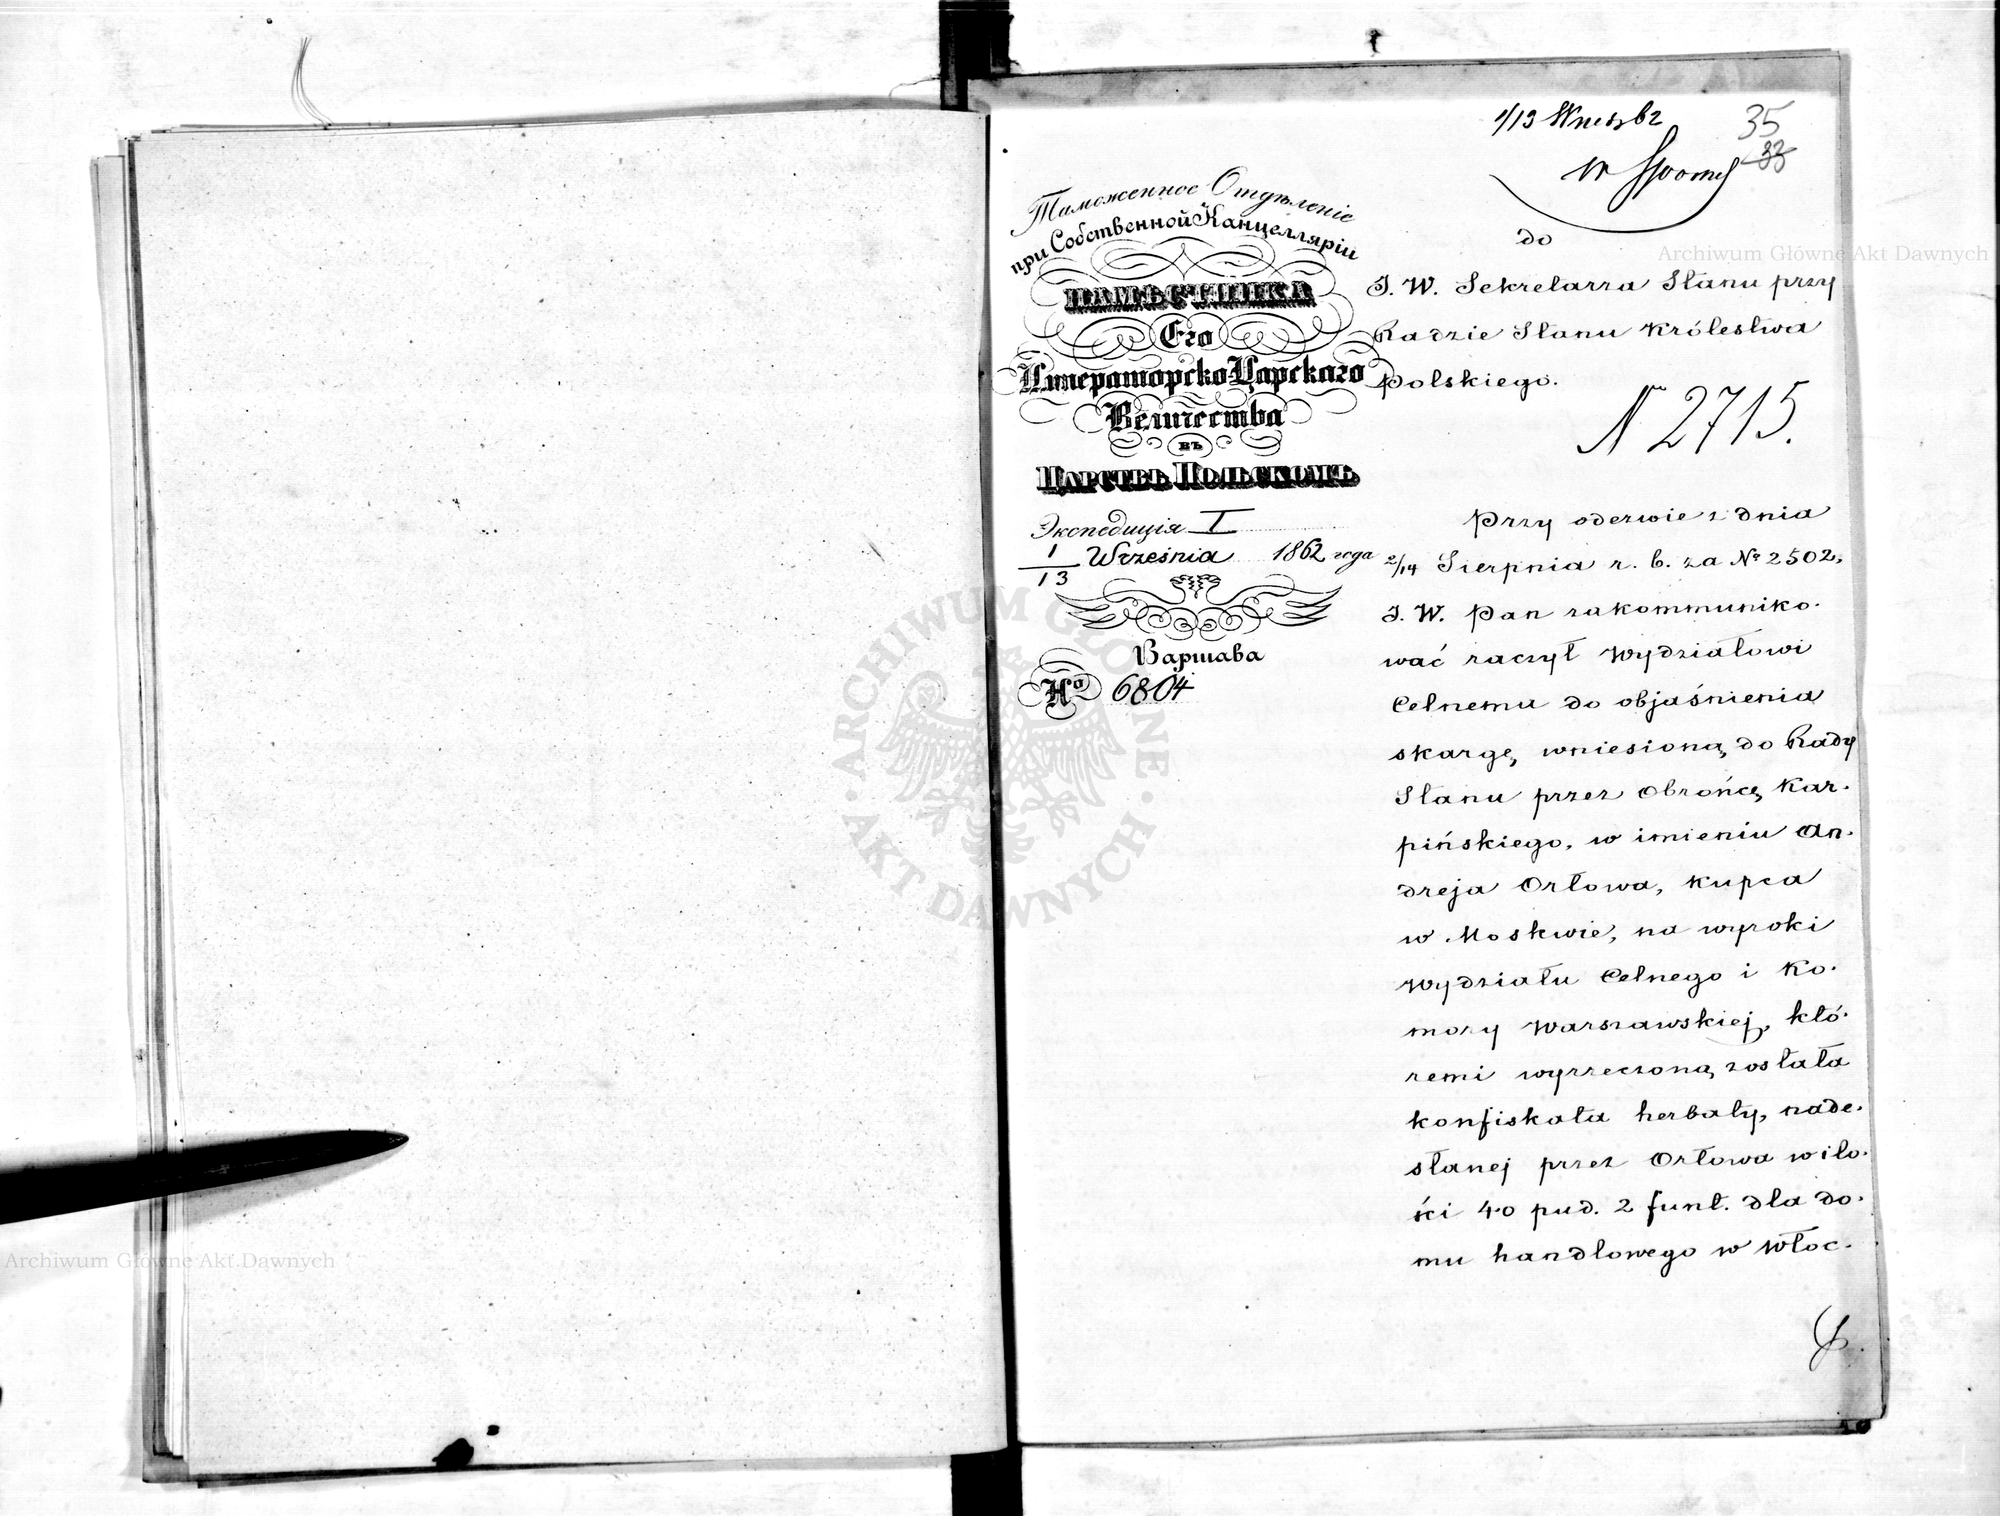 1/13 Wrześ 62
35
33
Таможенное Отдѣленіе
при Собственной Канцелляріи
НАМѢСТНИКА
Его
Императорско-Царскаго
Величества
въ
Царствѣ Польскомъ
Экспедиція I
1/13 Września 1862 года
Варшава
No 6804
do
J. W. Sekretarza Stanu przy
Radzie Stanu Królestwa
Polskiego.
N 2715.
Przy odezwie z dnia
2/14 Sierpnia r. b. za No 2502,
J. W. Pan zakommuniko-
wać raczył Wydziałowi
Celnemu do objaśnienia
skargę, wniesioną do Rady
Stanu przez Obrońcę Kar-
pińskiego, w imieniu An-
dreja Orłowa, kupca
w Moskwie, na wyroki
Wydziału Celnego i Ko-
mory Warszawskiej, któ-
remi wyrzeczoną została
konfiskata herbaty, nade-
słanej przez Orłowa w ilo-
ści 40 pud. 2 funt. dla do-
mu handlowego w Włoc-
ARCHIWUM GŁÓWNE AKT DAWNYCH
Archiwum Główne Akt Dawnych
Archiwum Główne Akt Dawnych